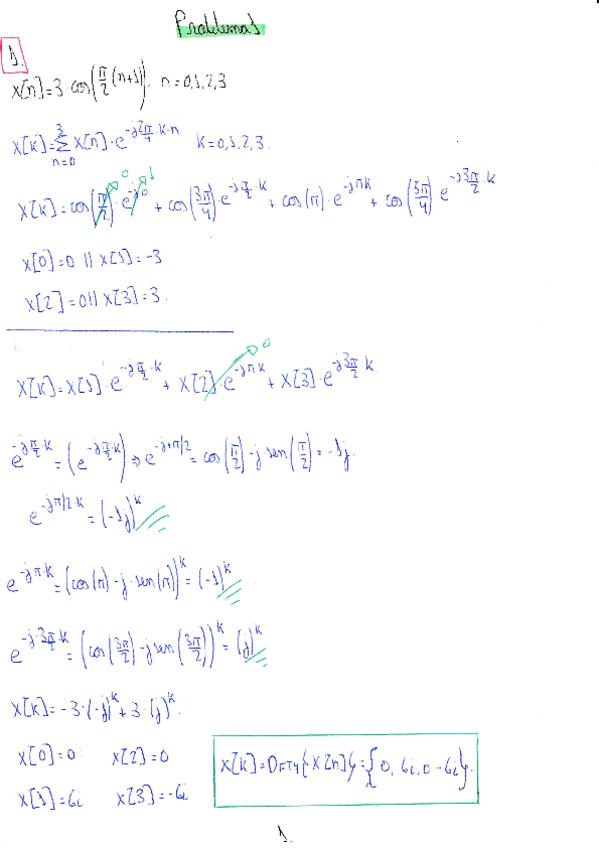 Problemas
1.
x[n]=3·cos(π/2 (n+1)). n=0,1,2,3
X[k]=∑_{n=0}^{3} x[n]·e^{-j2π/4·k·n} k=0,1,2,3.
X[k]=cos(π/2)·e^{-j0} + cos(3π/4)·e^{-jπ/2·k} + cos(π)·e^{-jπk} + cos(5π/4) e^{-j3π/2·k}
0 1
x[0]=0 || x[1]=-3
x[2]=0 || x[3]=3.
X[k]=x[1]·e^{-jπ/2·k} + x[2]·e^{-jπk} + x[3]·e^{-j3π/2 k}
0
e^{-jπ/2·k}=(e^{-jπ/2·k}) ⇒ e^{-j·π/2}=cos(π/2)-j·sen(π/2)=-1j.
e^{-jπ/2·k}=(-1j)^k
e^{-jπ·k}=(cos(π)-j·sen(π))^k=(-1)^k
e^{-j·3π/2·k}=(cos(3π/2)-j sen(3π/2))^k=(j)^k
X[k]=-3·(-j)^k+3·(j)^k.
X[0]=0 X[2]=0
X[1]=6i X[3]=-6i
X[k]=DFT4{x[n]}={0, 6i, 0 -6i}.
1.